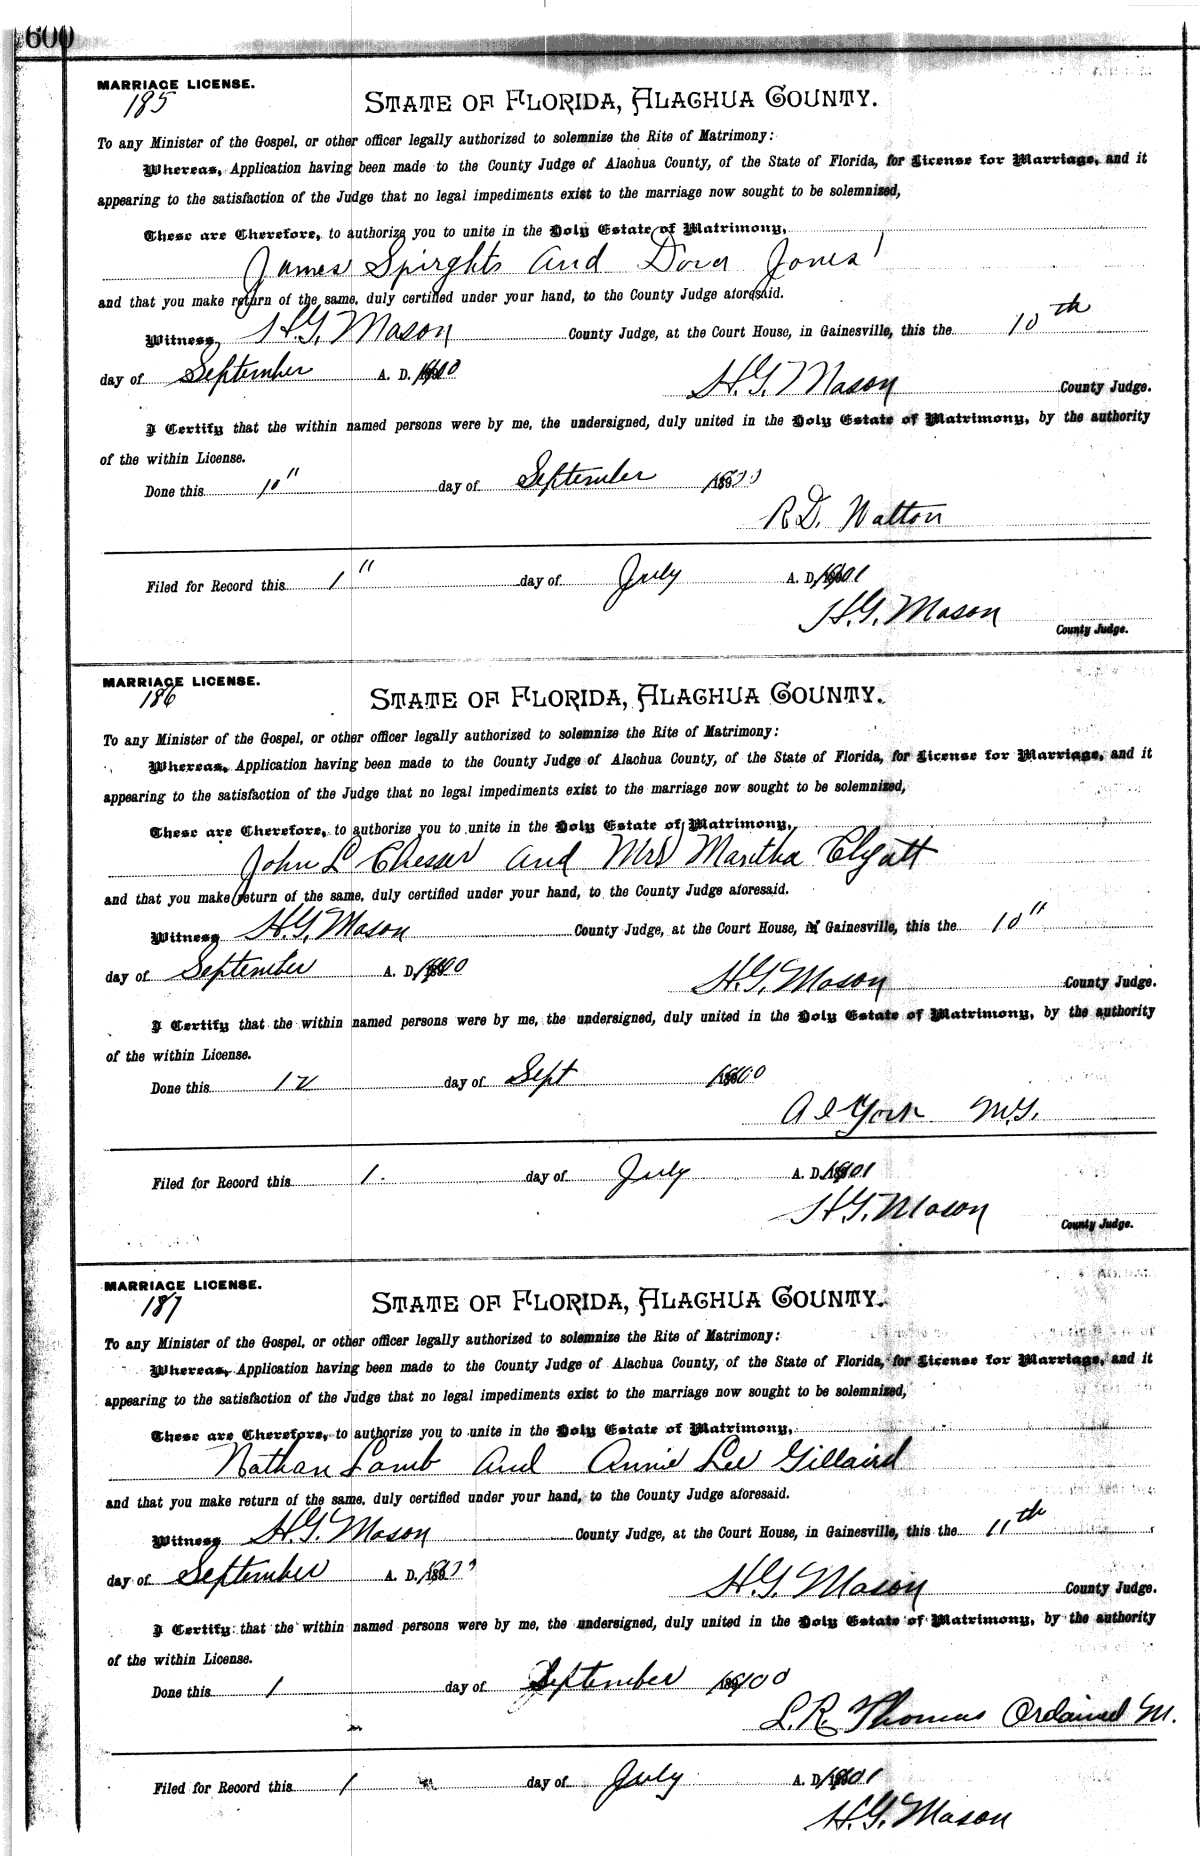 600
MARRIAGE LICENSE.
185
STATE OF FLORIDA, ALACHUA COUNTY.
To any Minister of the Gospel, or other officer legally authorized to solemnize the Rite of Matrimony:
Whereas, Application having been made to the County Judge of Alachua County, of the State of Florida, for License for Marriage, and it
appearing to the satisfaction of the Judge that no legal impediments exist to the marriage now sought to be solemnized,
These are Therefore, to authorize you to unite in the Holy Estate of Matrimony,
James Spirghts and Dora Jones
and that you make return of the same, duly certified under your hand, to the County Judge aforesaid.
Witness, H.G. Mason County Judge, at the Court House, in Gainesville, this the 10th
day of September A. D. 1900
H.G. Mason County Judge.
I Certify that the within named persons were by me, the undersigned, duly united in the Holy Estate of Matrimony, by the authority
of the within License.
Done this 10" day of September 1900
R.D. Walton
Filed for Record this 1" day of July A. D. 1901
H.G. Mason
County Judge.
MARRIAGE LICENSE.
186
STATE OF FLORIDA, ALACHUA COUNTY.
To any Minister of the Gospel, or other officer legally authorized to solemnize the Rite of Matrimony:
Whereas, Application having been made to the County Judge of Alachua County, of the State of Florida, for License for Marriage, and it
appearing to the satisfaction of the Judge that no legal impediments exist to the marriage now sought to be solemnized,
These are Therefore, to authorize you to unite in the Holy Estate of Matrimony,
John L Chesar and Mrs Martha Clyatt
and that you make return of the same, duly certified under your hand, to the County Judge aforesaid.
Witness H.G. Mason County Judge, at the Court House, in Gainesville, this the 10"
day of September A. D. 1900
H.G. Mason County Judge.
I Certify that the within named persons were by me, the undersigned, duly united in the Holy Estate of Matrimony, by the authority
of the within License.
Done this 12 day of Sept 1900
York M.G.
Filed for Record this 1. day of July A. D. 1901
H.G. Mason
County Judge.
MARRIAGE LICENSE.
187
STATE OF FLORIDA, ALACHUA COUNTY.
To any Minister of the Gospel, or other officer legally authorized to solemnize the Rite of Matrimony:
Whereas, Application having been made to the County Judge of Alachua County, of the State of Florida, for License for Marriage, and it
appearing to the satisfaction of the Judge that no legal impediments exist to the marriage now sought to be solemnized,
These are Therefore, to authorize you to unite in the Holy Estate of Matrimony,
Nathan Lamb and Annie Lee Gillaird
and that you make return of the same, duly certified under your hand, to the County Judge aforesaid.
Witness H.G. Mason County Judge, at the Court House, in Gainesville, this the 11th
day of September A. D. 1900
H.G. Mason County Judge.
I Certify that the within named persons were by me, the undersigned, duly united in the Holy Estate of Matrimony, by the authority
of the within License.
Done this 1 day of September 1900
L.R. Thomas Ordained M.
Filed for Record this 1 day of July A. D. 1901
H.G. Mason